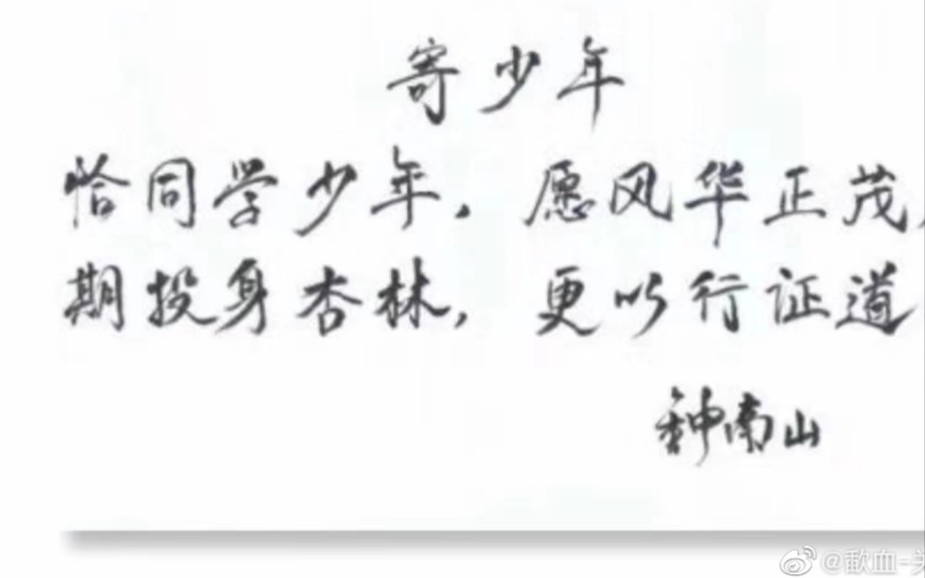 寄少年
恰同学少年，愿风华正茂
期投身杏林，更以行证道
钟南山
@歃血=